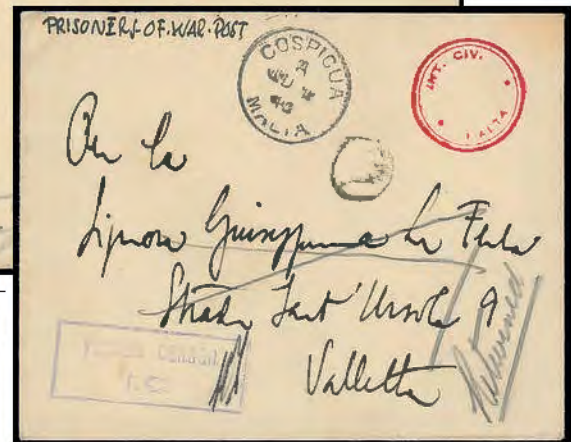 PRISONERS-OF-WAR POST
COSPICUA
MALTA
INT. CIV.
MALTA
On la
Signora Giuseppina La
Strada Sant' Ursola 9
Valletta
Returned
CENSOR